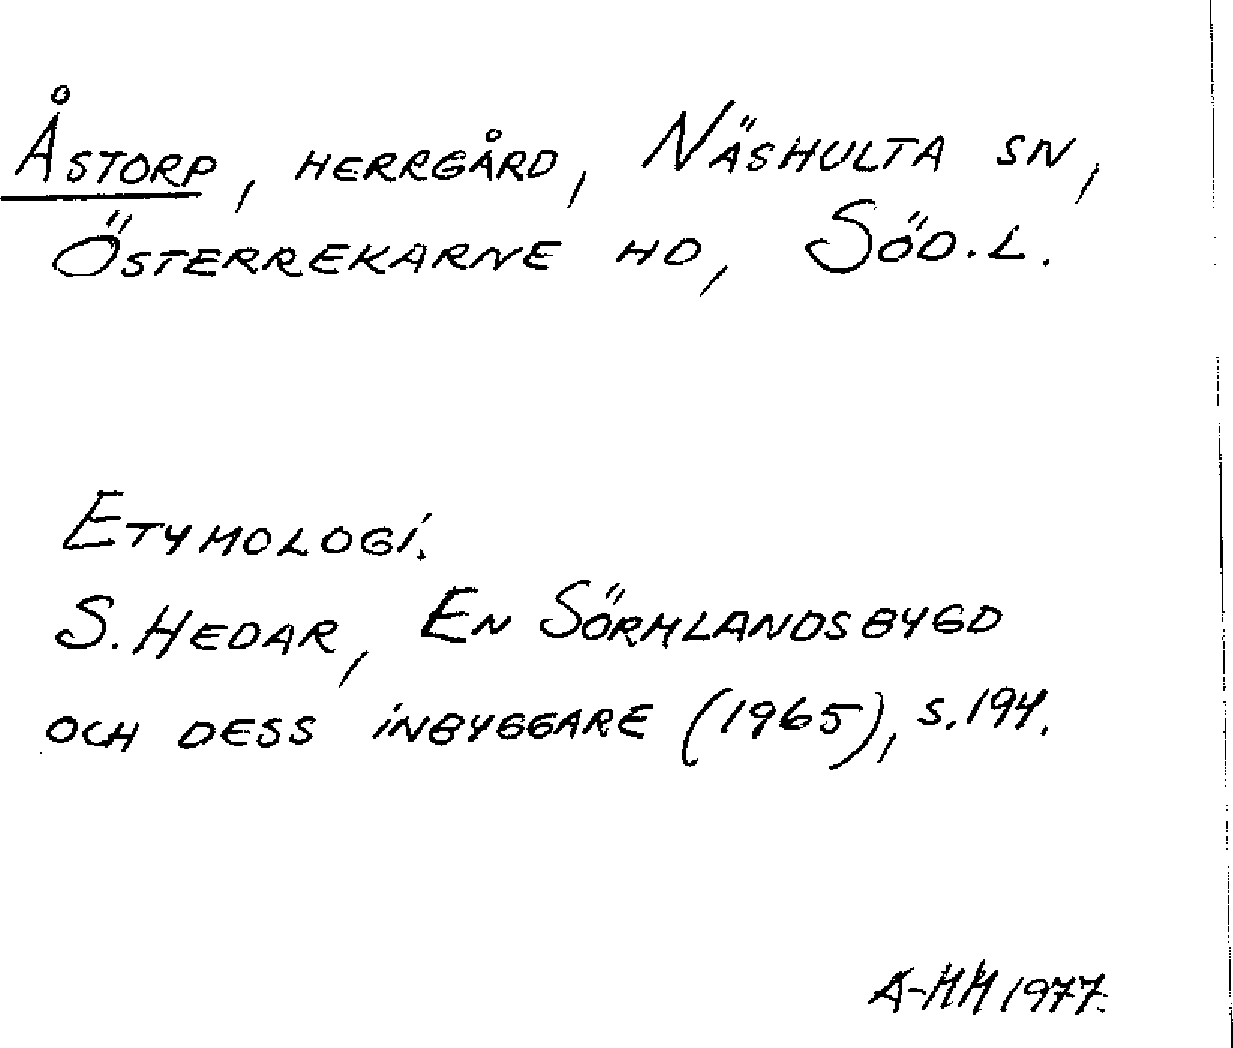 Åstorp, herrgård, Näshulta sn,
Österrekarne hd, Söd.l.
Etymologi.
S. Hedar, En Sörmlandsbygd
och dess inbyggare (1965), s. 194.
A-MM 1977.